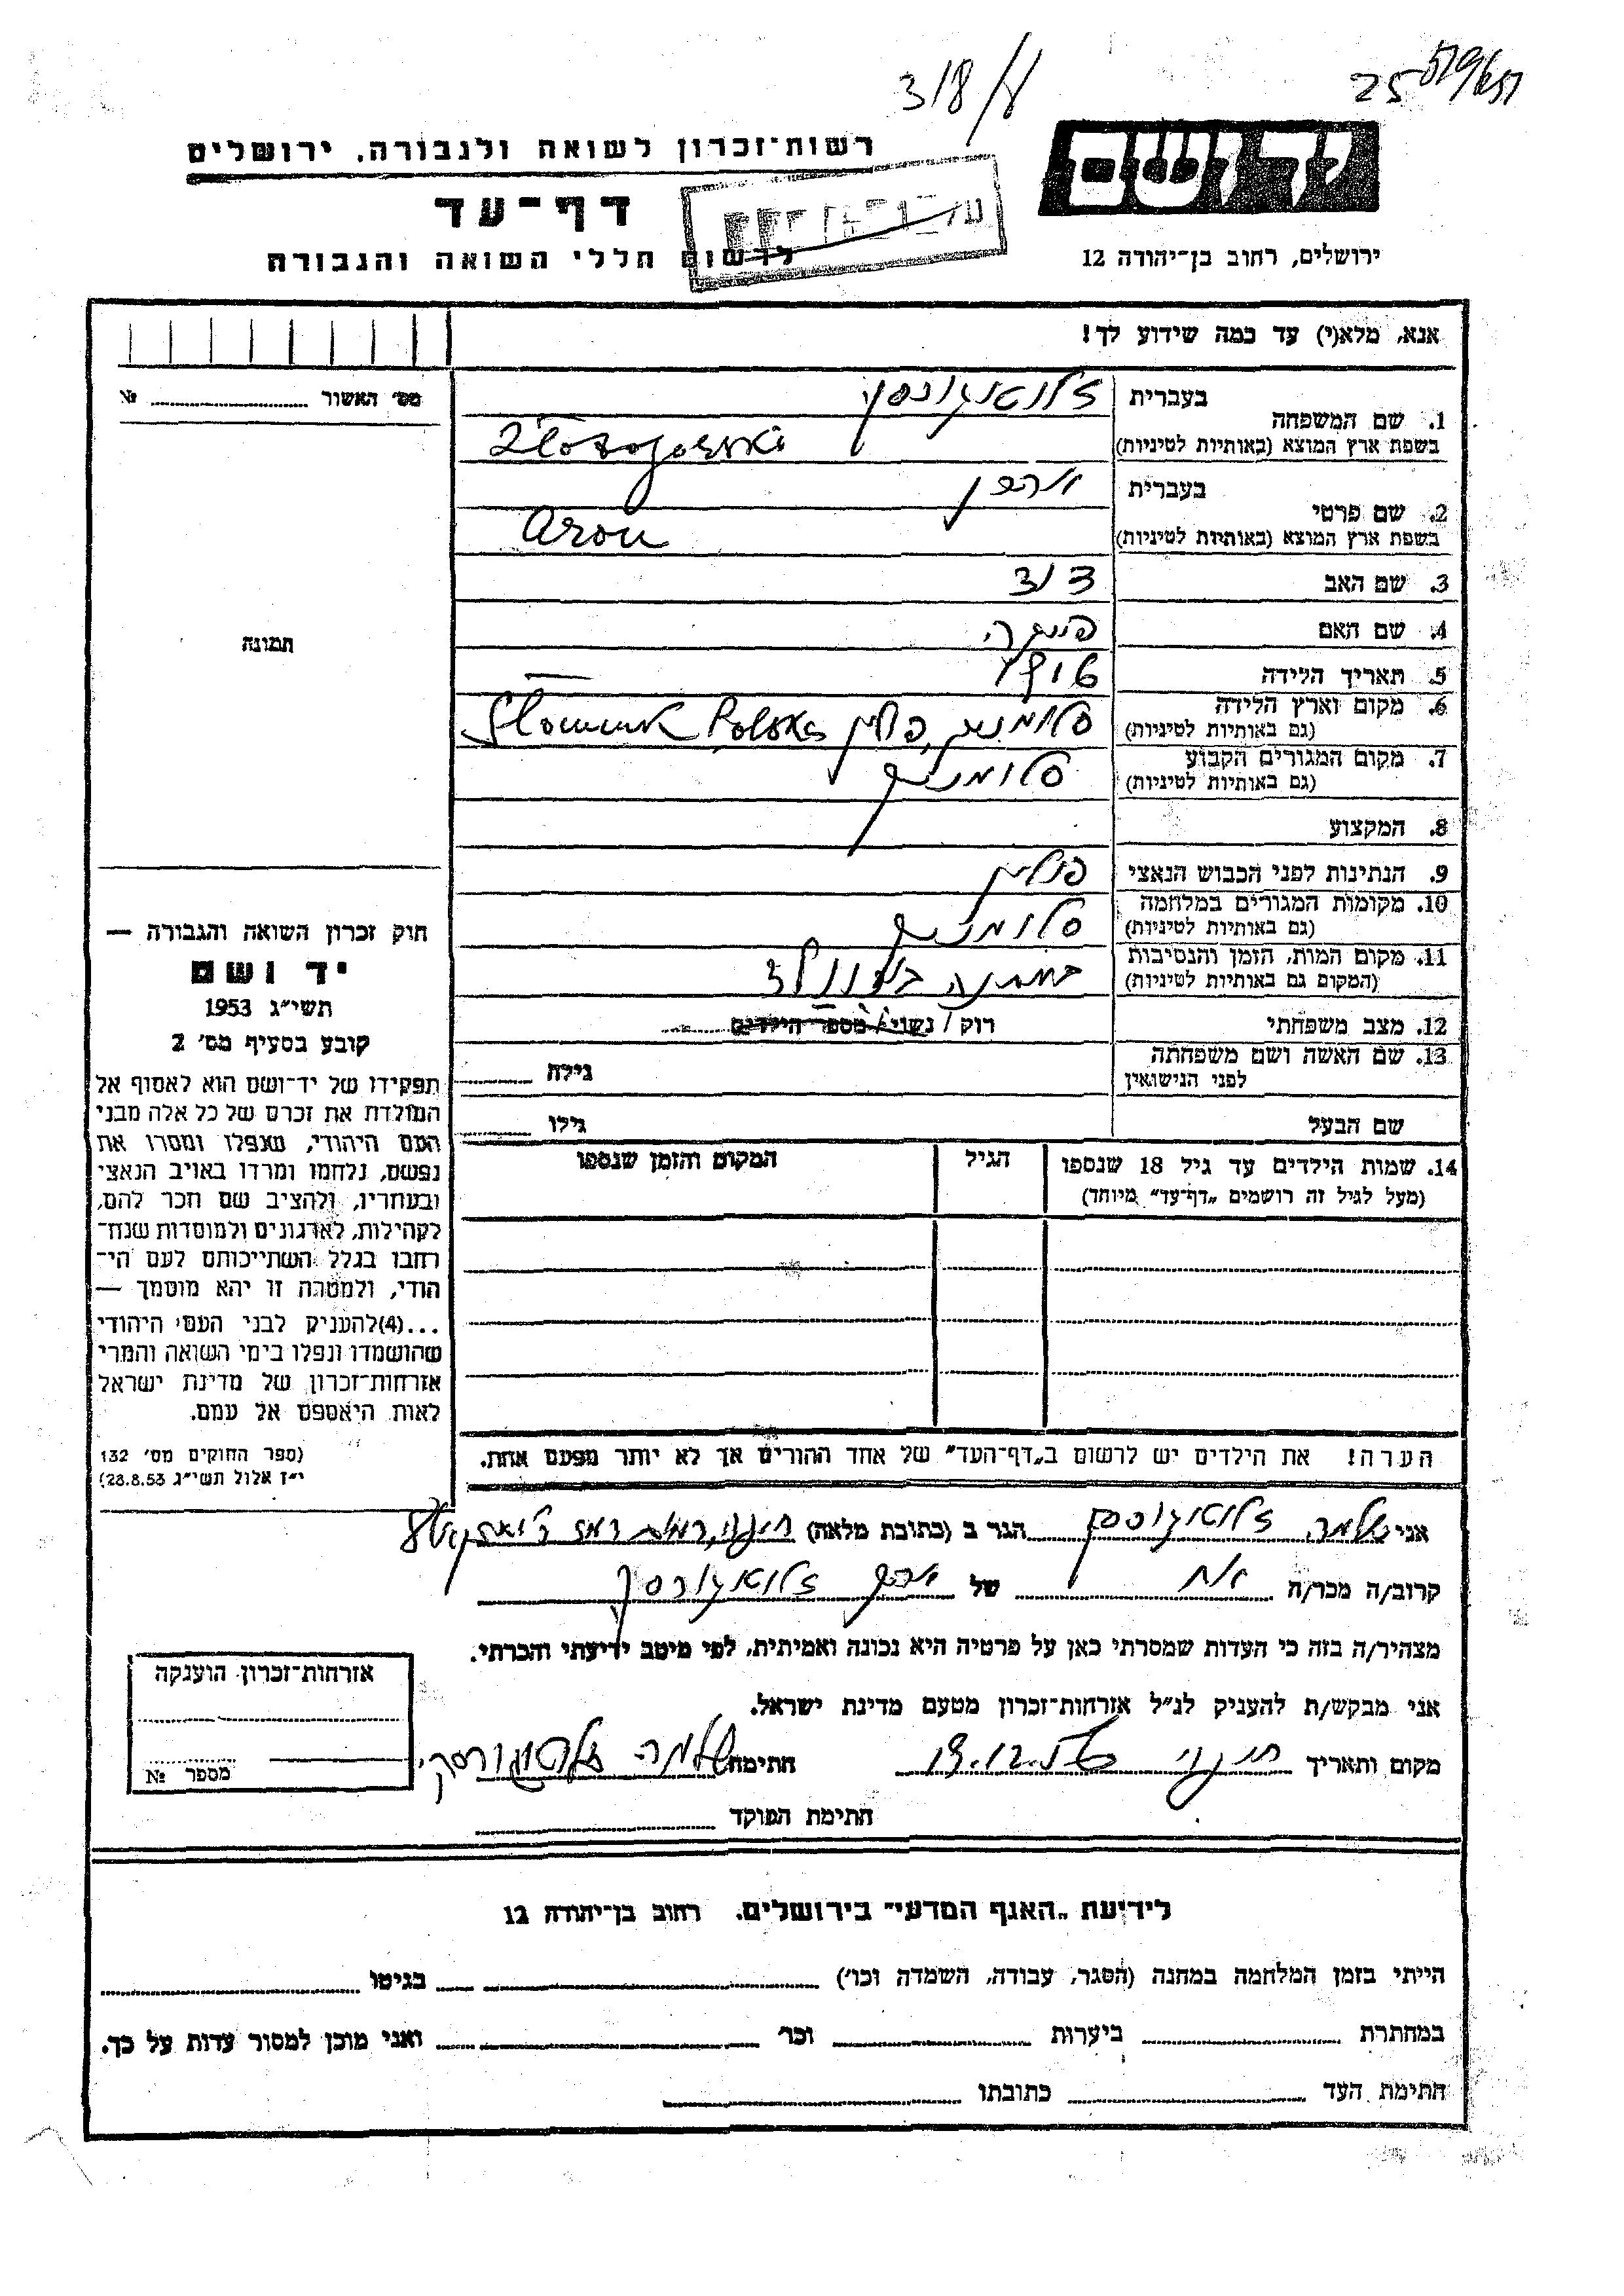 318/
25
רשות־זכרון לשואה ולגבורה, ירושלים
יד ושם
דף־עד
לרשום חללי השואה והגבורה
ירושלים, רחוב בן־יהודה 12
אנא, מלא(י) עד כמה שידוע לך!
מס׳ האשור № 
1. שם המשפחה
בעברית זלוטוגורסקי
בשפת ארץ המוצא (באותיות לטיניות) Złotogorski
2. שם פרטי
בעברית אהרן
בשפת ארץ המוצא (באותיות לטיניות) Aron
3. שם האב דוד
4. שם האם
5. תאריך הלידה
6. מקום וארץ הלידה
(גם באותיות לטיניות) סלומניק, פולין Słomnik Polska
7. מקום המגורים הקבוע
(גם באותיות לטיניות) סלומניק
8. המקצוע
9. הנתינות לפני הכבוש הנאצי פולין
10. מקומות המגורים במלחמה
(גם באותיות לטיניות) סלומניק
11. מקום המות, הזמן והנסיבות
(המקום גם באותיות לטיניות) במחנה
12. מצב משפחתי רוק / נשוי / מספר הילדים
13. שם האשה ושם משפחתה
לפני הנישואין גילה
שם הבעל גילו
14. שמות הילדים עד גיל 18 שנספו הגיל המקום והזמן שנספו
(מעל לגיל זה רושמים „דף־עד״ מיוחד)
הערה! את הילדים יש לרשום ב„דף־העד״ של אחד ההורים אך לא יותר מפעם אחת.
תמונה
חוק זכרון השואה והגבורה —
יד ושם
תשי״ג 1953
קובע בסעיף מס׳ 2
תפקידו של יד־ושם הוא לאסוף אל
המולדת את זכרם של כל אלה מבני
העם היהודי, שנפלו ומסרו את
נפשם, נלחמו ומרדו באויב הנאצי
ובעוזריו, ולהציב שם וזכר להם,
לקהילות, לארגונים ולמוסדות שנח־
רבו בגלל השתייכותם לעם הי־
הודי, ולמטרה זו יהא מוסמך —
...(4) להעניק לבני העם היהודי
שהושמדו ונפלו בימי השואה והמרי
אזרחות־זכרון של מדינת ישראל
לאות היאספם אל עמם.
(ספר החוקים מס׳ 132
י״ז אלול תשי״ג 28.8.53)
אני שלמה זלוטוגורסקי הגר ב (כתובת מלאה)
קרוב/ה מכר/ה אח של אהרן זלוטוגורסקי
מצהיר/ה בזה כי העדות שמסרתי כאן על פרטיה היא נכונה ואמיתית, לפי מיטב ידיעתי והכרתי.
אני מבקש/ת להעניק לנ״ל אזרחות־זכרון מטעם מדינת ישראל.
מקום ותאריך חתימה שלמה זלוטוגורסקי
חתימת הפוקד
אזרחות־זכרון הוענקה
מספר №
לידיעת „האגף המדעי״ בירושלים, רחוב בן־יהודה 12
הייתי בזמן המלחמה במחנה (הסגר, עבודה, השמדה וכו׳) בגיטו
במחתרת ביערות וכו׳ ואני מוכן למסור עדות על כך.
חתימת העד כתובתו